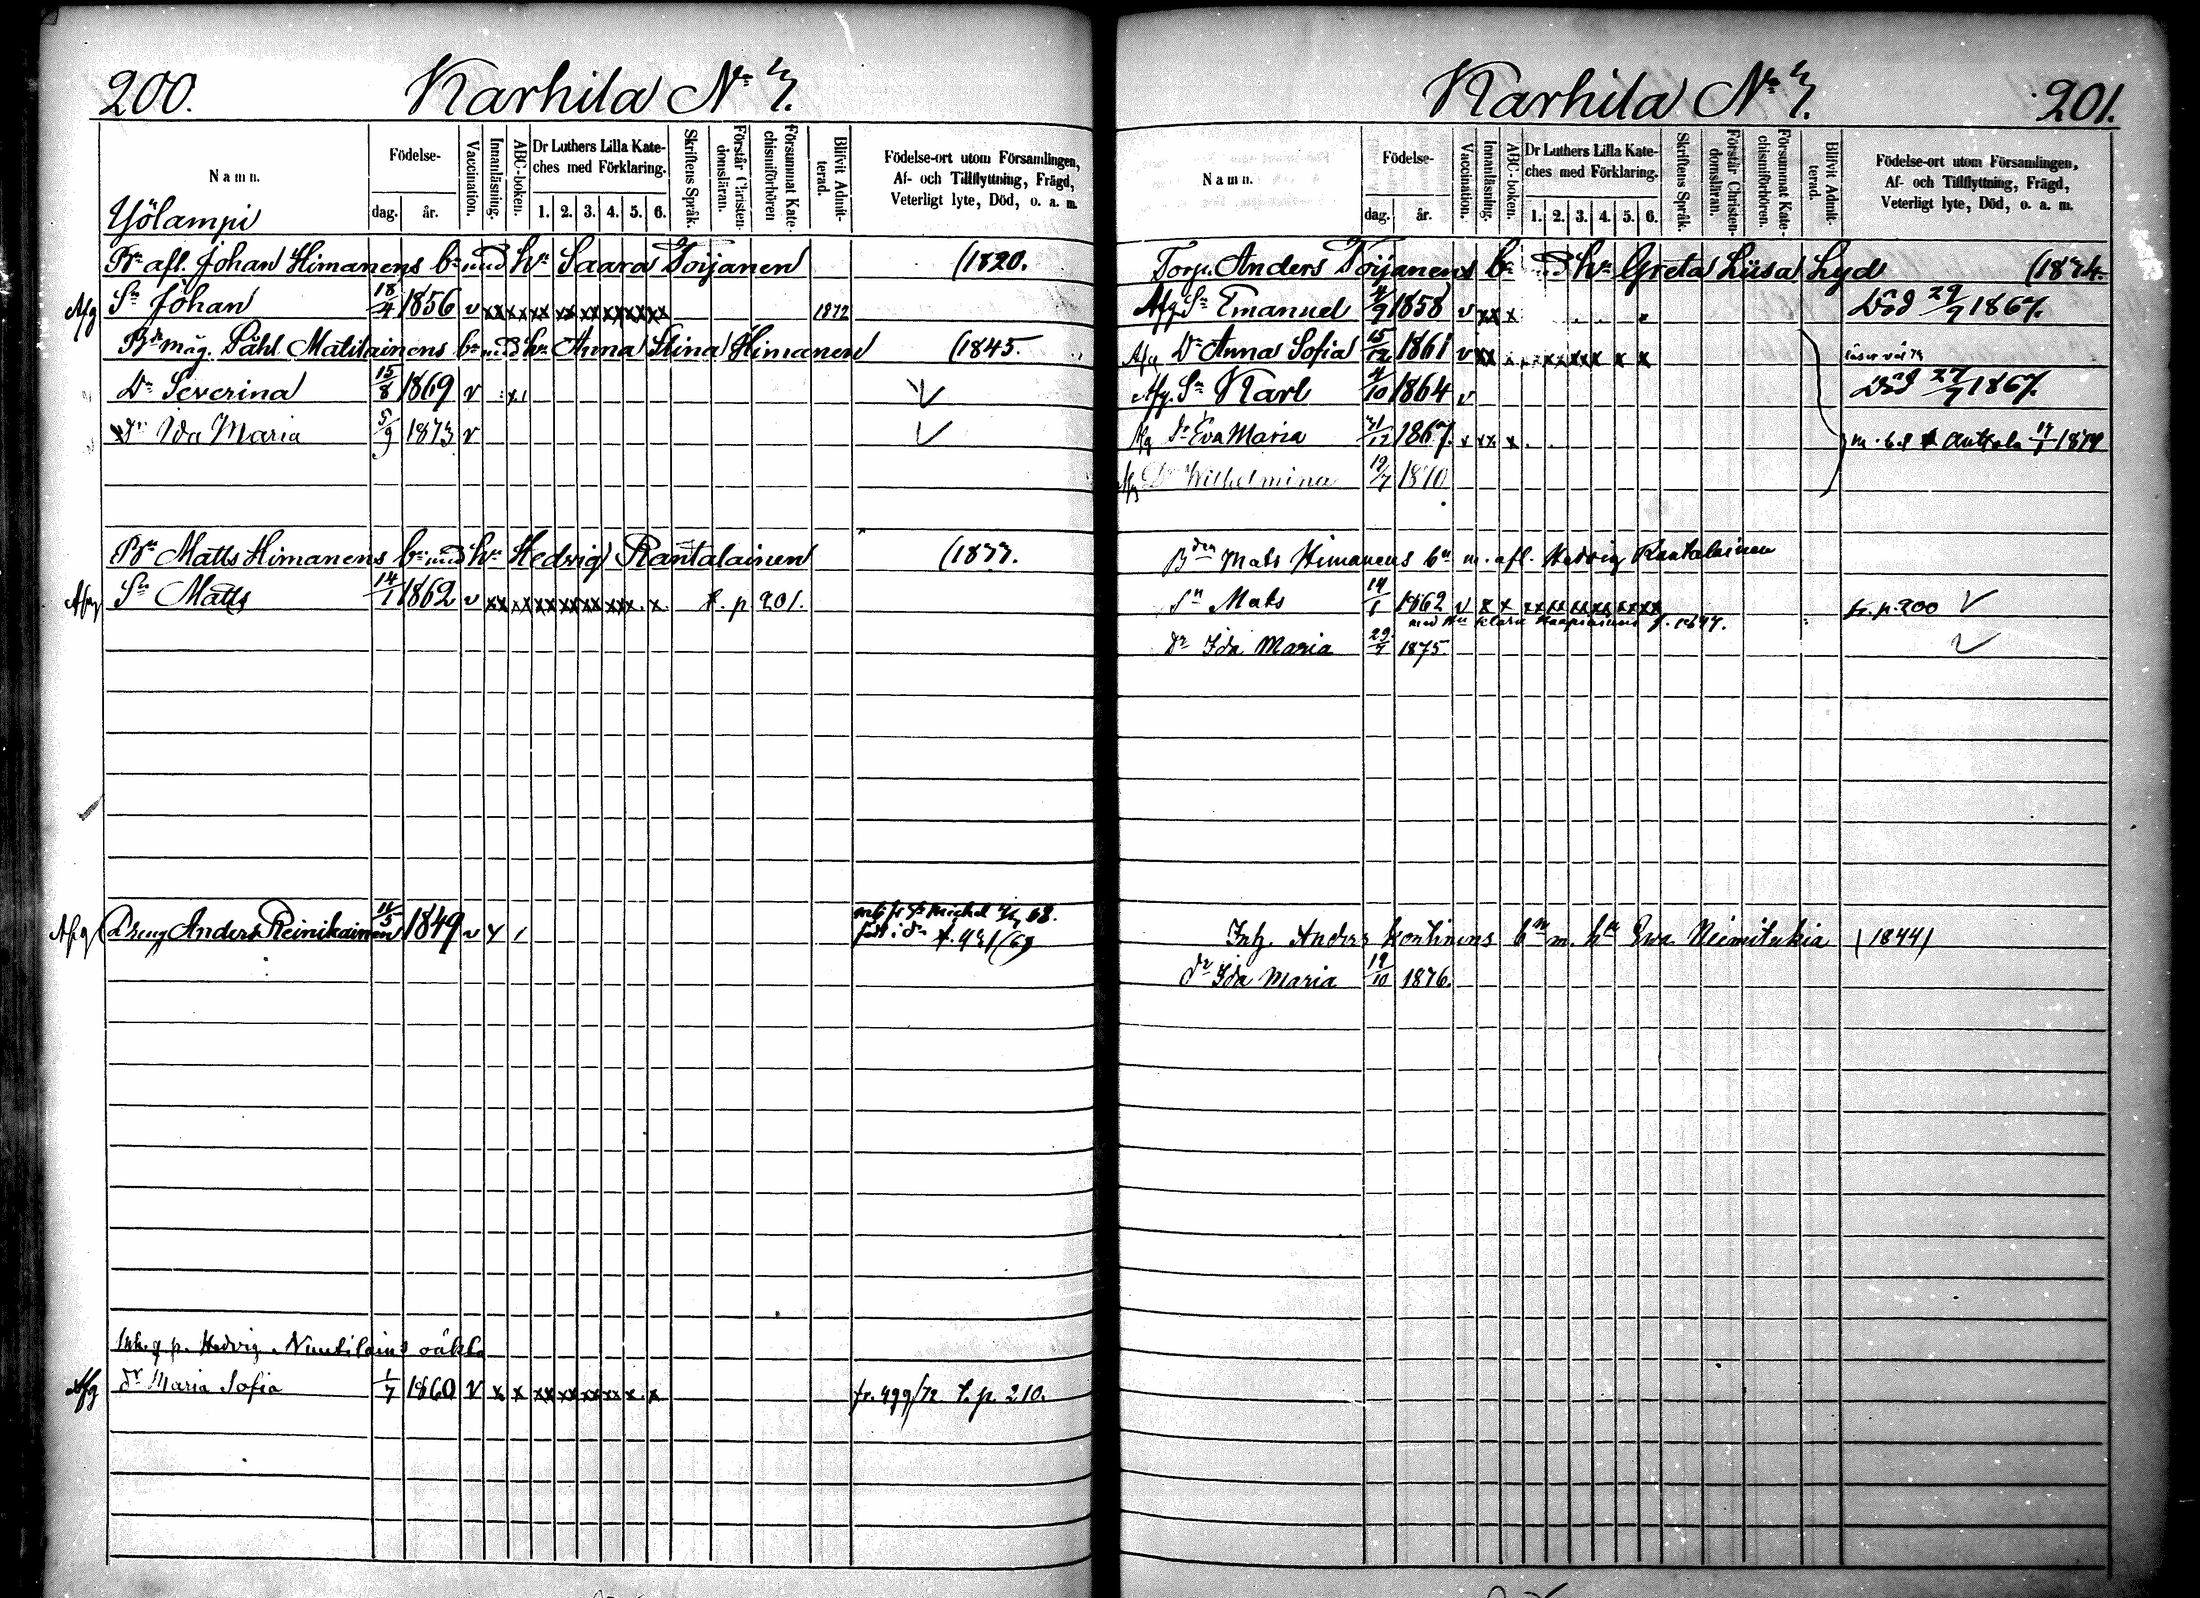 200.
Karhila No 7.
Namn.
Födelse-
dag.
år.
Vaccination.
Innanläsning.
ABC-boken.
Dr Luthers Lilla Kate-
ches med Förklaring.
1. 2. 3. 4. 5. 6.
Skriftens Språk.
Förstår Christen-
domsläran.
Försummat Kate-
chismiförhören
Blifvit Admit-
terad.
Födelse-ort utom Församlingen,
Af- och Tillflyttning, Frägd,
Veterligt lyte, Död, o. a. m.
Yölampi
Bn afl. Johan Himanens bn med hu Saara Toijanen (1820.
Afg Sn Johan 18/4 1856 v xx xx xx xx xx xx xx xx 1872
Bdr måg. Påhl Matilainens bn med hu Anna Stina Himanen (1845.
Dr Severina 15/8 1869 v
dr Ida Maria 5/9 1873 v
Bn Matts Himanens bn med hu Hedvig Rantalainen (1877.
Afg Sn Matts 14/1 1862 v xx xx xx xx xx xx. x. t. p 201.
Afg Dreng Anders Reinikainen 1849 v
St Michel 68.
Hedvig oäkta
Afg dr Maria Sofia 1/7 1860 v x x xx xx xx xx x. x fr. 499/72 t. p. 210.
Karhila No 7.
201.
Namn.
Födelse-
dag.
år.
Vaccination.
Innanläsning.
ABC-boken.
Dr Luthers Lilla Kate-
ches med Förklaring.
1. 2. 3. 4. 5. 6.
Skriftens Språk.
Förstår Christen-
domsläran.
Försummat Kate-
chismiförhören.
Blifvit Admit-
terad.
Födelse-ort utom Församlingen,
Af- och Tillflyttning, Frägd,
Veterligt lyte, Död, o. a. m.
Torp. Anders Toijanens bn med hu Greta Liisa Lyd (1874.
Afg Sn Emanuel 4/9 1858 v xx x Död 29/7 1867.
Afg Dr Anna Sofia 15/12 1861 v xx
Afg. Sn Karl 4/10 1864 v Död 27/7 1867.
Afg dr Eva Maria 1867. x xx x Anttola
Afg Dr Wilhelmina 19/7 1870
Bden Mats Himanens bn m. afl. Hedvig Rantalainen
Sn Mats 14/1 1862 v x x xx xx xx xx xx xx fr. p. 200
dr Ida Maria 29/7 1875.
Inh. Anders Kontinens bn m. hu Ewa (1844)
dr Ida Maria 19/10 1876.